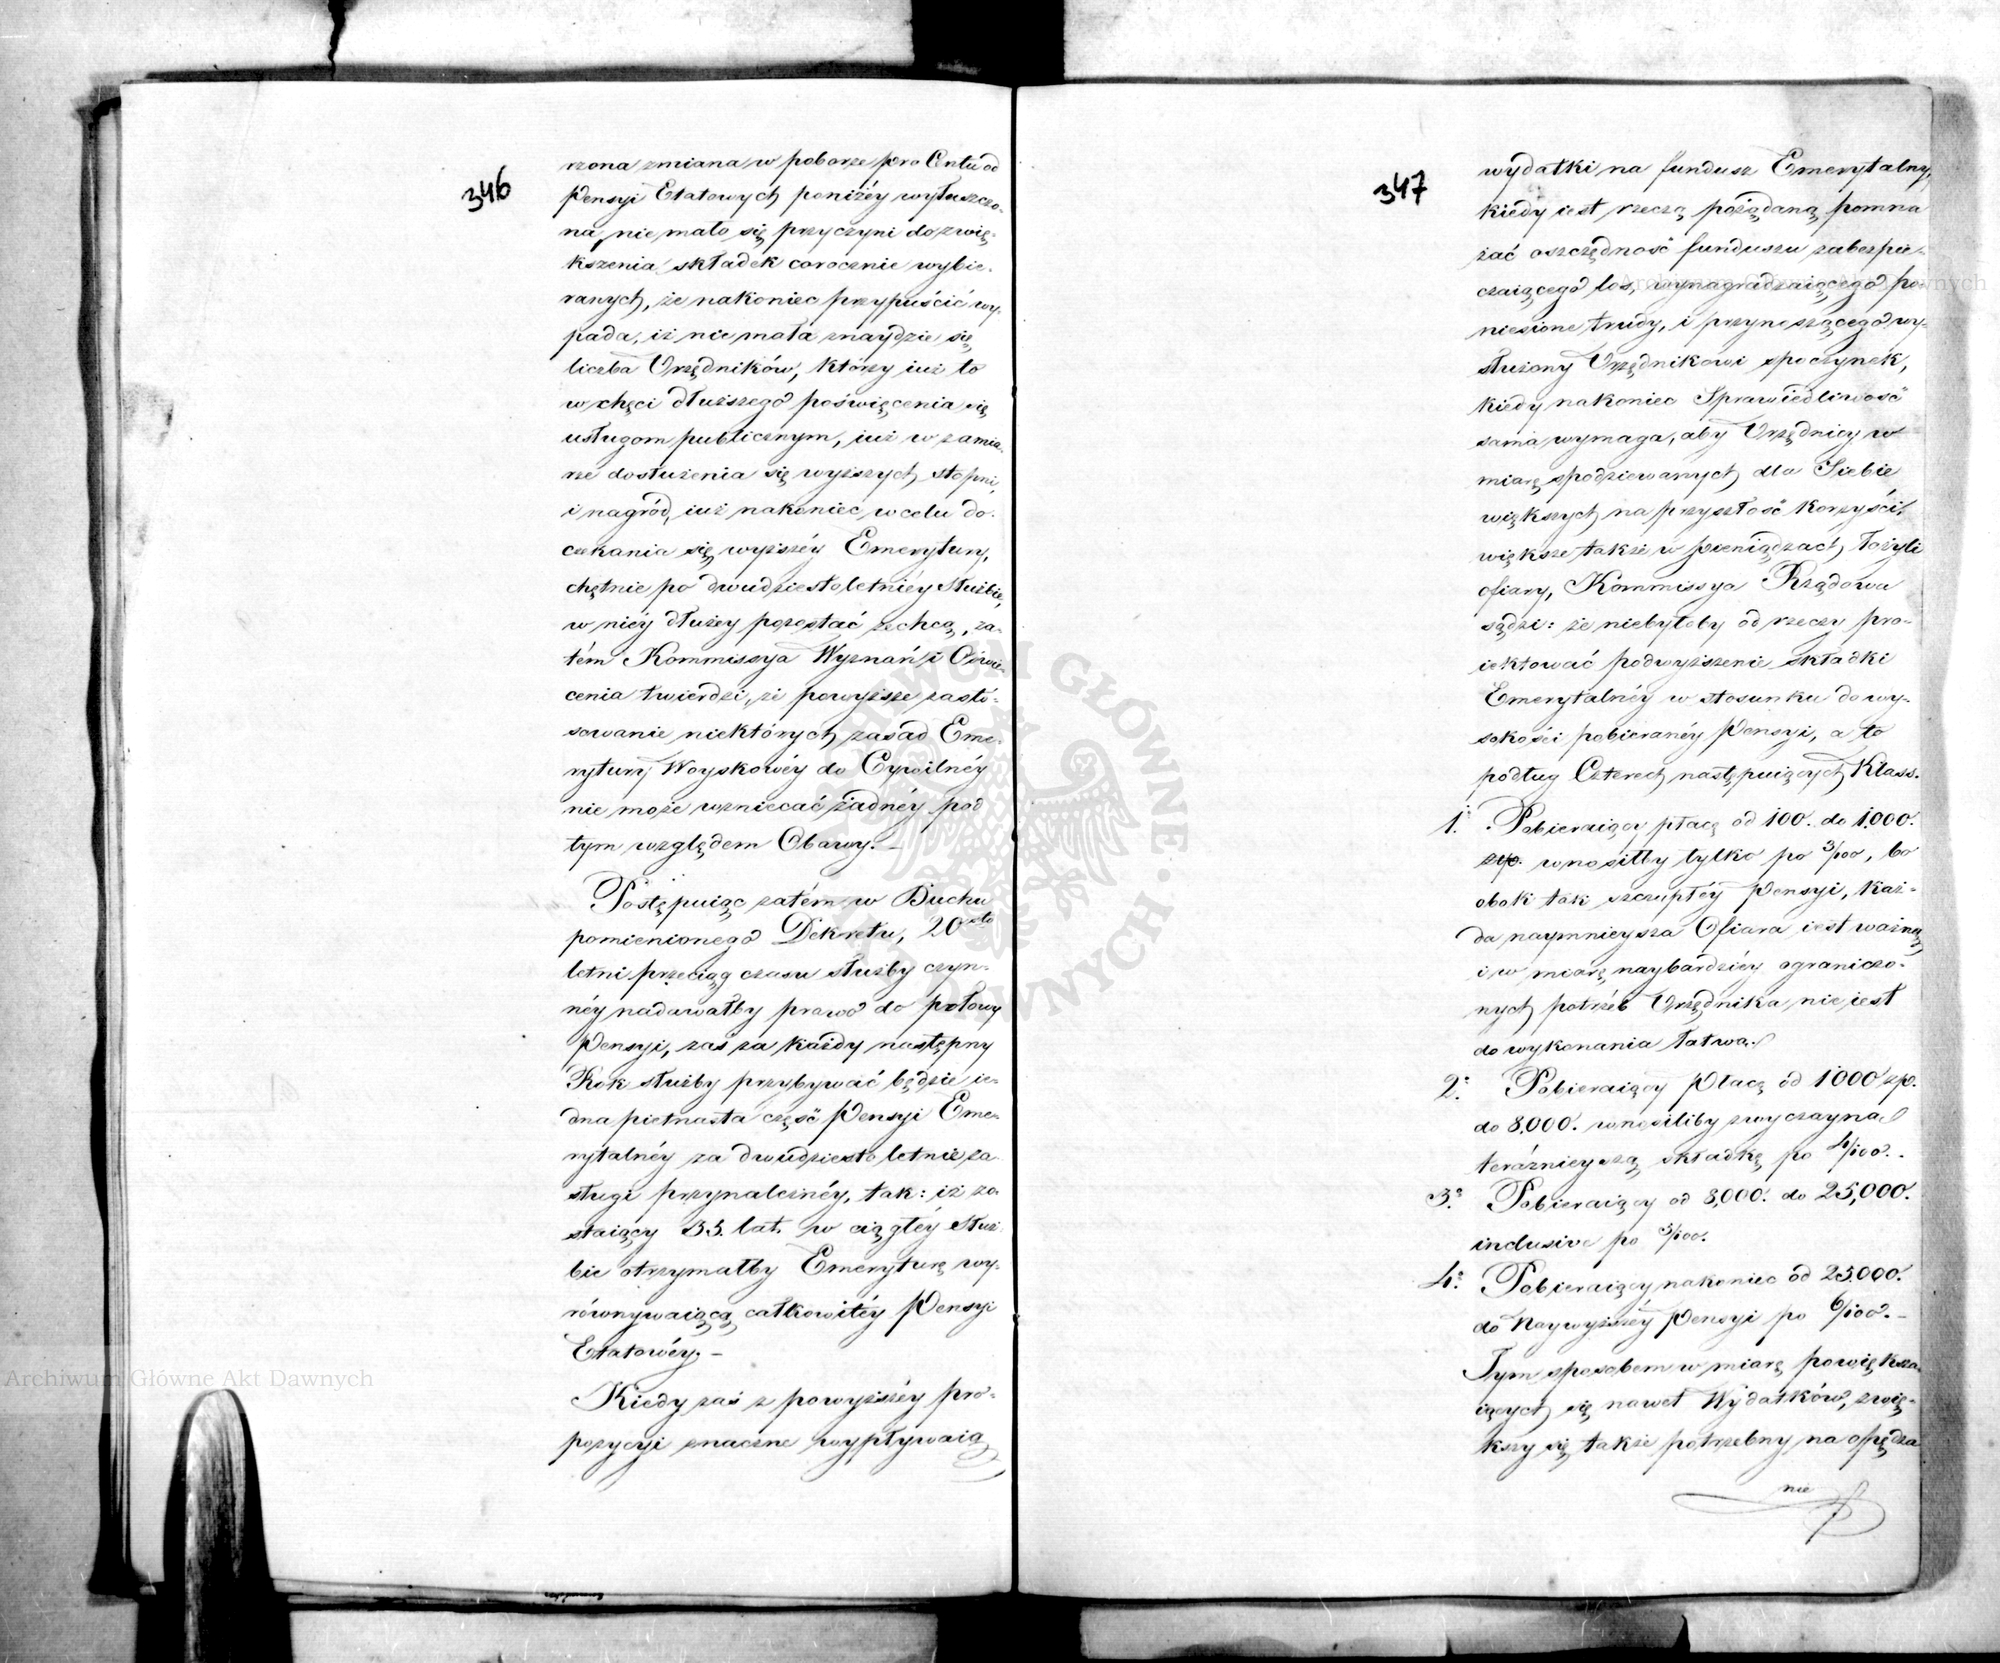 346
rzona zmiana w poborze pro Centu od
Pensyi Etatowych poniżéy wyłuszczo-
na, nie mało się przyczyni do zwię-
kszenia składek corocznie wybie-
ranych, że nakoniec przypuścić wy-
pada, iż nie mała znaydzie się
liczba Urzędników, którzy iuż to
w chęci dłuższego poświęcenia się
usługom publicznym, iuż w zamia-
rze dosłużenia się wyższych stopni
i nagród, iuż nakoniec w celu do-
czekania się wyższéy Emerytury,
chętnie po dwudziestoletniéy służbie,
w niéy dłużey pozostać zechcą, za-
tém Kommissya Wyznań i Oświe-
cenia twierdzi, że powyższe zasto-
sowanie niektórych zasad Eme-
rytury Woyskowéy do Cywilnéy
nie może wzniecać żadnéy pod
tym względem Obawy. –
Postępuiąc zatém w Duchu
pomienionego Dekretu, 20sto
letni przeciąg czasu służby czyn-
néy nadawałby prawo do połowy
Pensyi, zaś za każdy następny
Rok służby przybywać będzie ie-
dna pietnasta część Pensyi Eme-
rytalnéy za dwudziesto letnie za-
sługi przynależnéy, tak: iż zo-
staiący 35. lat. w ciągłéy służ-
bie otrzymałby Emeryturę wy-
równywaiącą całkowitéy Pensyi
Etatowéy. –
Kiedy zaś z powyższéy pro-
pozycyi znaczne wypływaią
347
wydatki na fundusz Emerytalny,
kiedy iest rzeczą pożądaną pomna
żać oszczędność funduszu zabezpie-
czaiącego los, wynagradzaiącego po-
niesione trudy, i przynoszącego wy-
służony Urzędnikowi spoczynek,
kiedy nakoniec Sprawiedliwość
sama wymaga, aby Urzędnicy w
miarę spodziewanych dla Siebie
większych na przyszłość korzyści,
większe także w pieniądzach łożyli
ofiary, Kommissya Rządowa
sądzi: że niebyłoby od rzeczy pro-
iektować podwyższenie składki
Emerytalnéy w stosunku do wy-
sokości pobieranéy Pensyi, a to
podług Czterech następuiących Klass.
1. Pobieraiący płacę od 100. do 1,000.
złp. wnosiłby tylko po 3/100, bo
obok tak szczupłéy Pensyi, każ-
da naymnieysza Ofiara iest ważną,
i w miarę naybardziéy ograniczo-
nych potrzeb Urzędnika nie iest
do wykonania łatwą.
2. Pobieraiący Płacę od 1000 zp.
do 8,000. wnosiliby zwyczayną
teraźnieyszą składkę po 4/100. –
3. Pobieraiący od 8,000. do 25,000.
inclusive po 5/100.
4. Pobieraiący nakoniec od 25,000.
do Naywyższéy Pensyi po 6/100. –
Tym sposobem w miarę powiększa-
iących się nawet Wydatków, zwię-
kszy się także potrzebny na opędze
nie
Archiwum Główne Akt Dawnych
Archiwum Główne Akt Dawnych